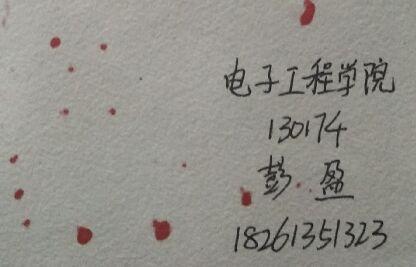 电子工程学院
130174
彭盈
18261351323